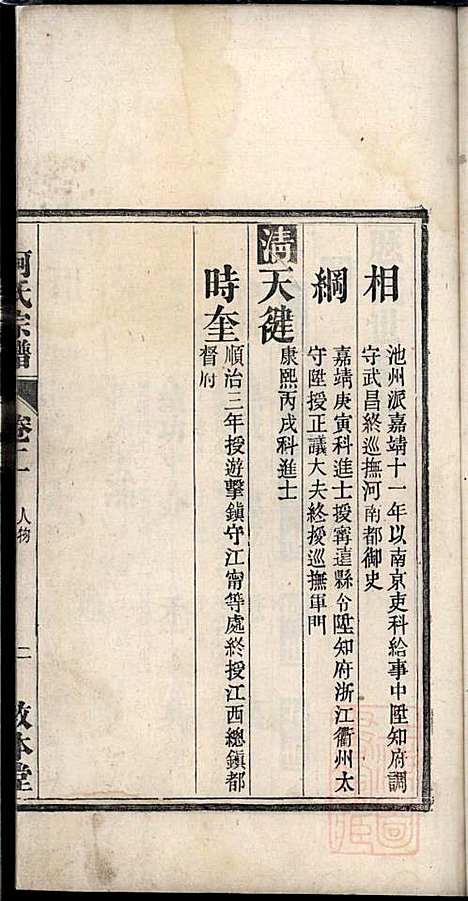 相
池州派嘉靖十一年以南京吏科給事中陞知府調
守武昌終巡撫河南都御史
綱
嘉靖庚寅科進士授寗遠縣令陞知府浙江衢州太
守陞授正議大夫終授巡撫軍門
清
天健
康熙丙戌科進士
時奎
順治三年授遊擊鎮守江甯等處終授江西總鎮都
督府
氏宗譜
卷二
人物
二
敦本堂